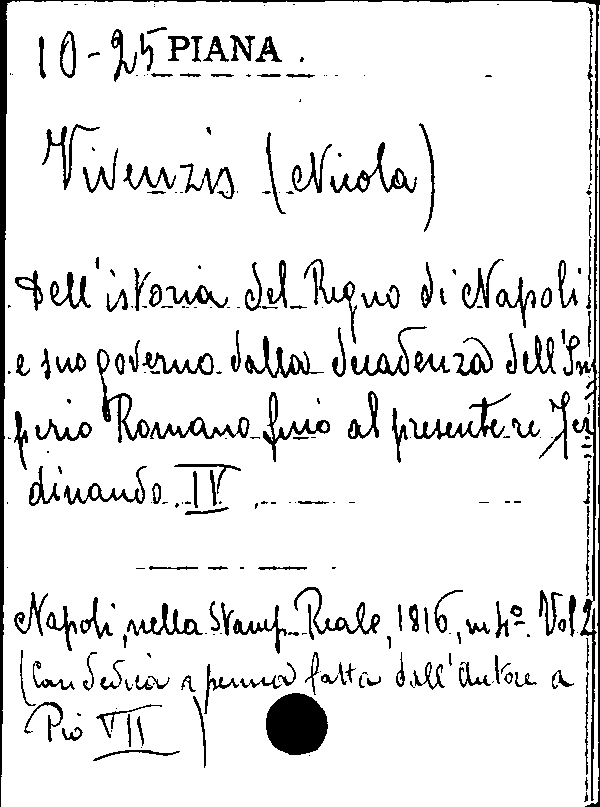 10-25 PIANA.
Vivenzio (Nicola)
Dell'istoria del Regno di Napoli
e suo governo dalla decadenza dell'Im
perio Romano fino al presente re Fer
dinando IV.
Napoli, nella Stamp. Reale, 1816, in 4º. Vol 2
(Con dedica a penna fatta dall'Autore a
Pio VII)